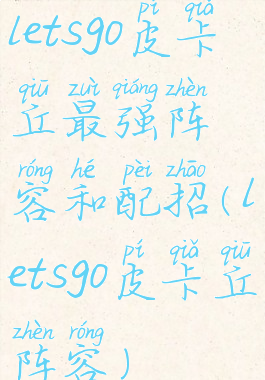 pí qiǎ
letsgo皮卡
qiū zuì qiáng zhèn
丘最强阵
róng hé pèi zhāo
容和配招(l
pí qiǎ qiū
etsgo皮卡丘
zhèn róng
阵容)